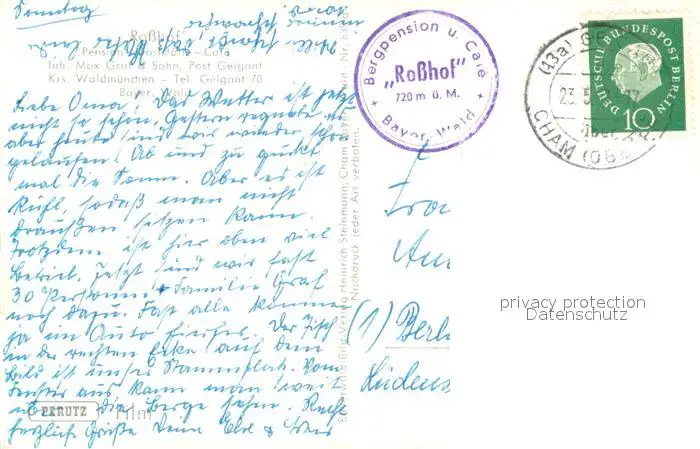 Sonntag
Roßhof
Pension - Café
Inh. Max Graf & Sohn, Post Geigant
Krs. Waldmünchen - Tel. Geigant 70
Bayer. Wald
Liebe Oma! Das Wetter ist jetzt
nicht so schön. Gestern regnete es
aber heute sind wir wieder schön
gelaufen. Ab und zu guckt
mal die Sonne. Aber es ist
kühl, sodaß man nicht
draußen sitzen kann.
Trotzdem ist hier oben viel
Betrieb. Jetzt sind wir fast
30 Personen + Familie Graf
noch dazu. Fast alle kommen
ja im Auto hierher. Der Tisch
in der rechten Ecke auf dem
Bild ist unser Stammplatz. Vom
Fenster aus kann man weit
die Berge sehen. Recht
herzliche Grüße Deine
PERUTZ Film
Verlag Heinrich Steinmann, Cham
Nachdruck jeder Art verboten.
Bergpension u. Café
"Roßhof"
720 m ü. M.
Bayer. Wald
(13a)
23.5
CHAM
DEUTSCHE BUNDESPOST BERLIN
10
(1) Berl
privacy protection
Datenschutz